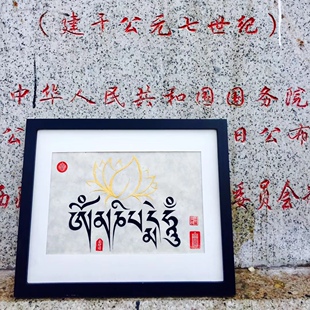 （建于公元七世纪）
中华人民共和国国务院
公 日公布
委员会
ཨོཾ་མ་ཎི་པདྨེ་ཧཱུྃ